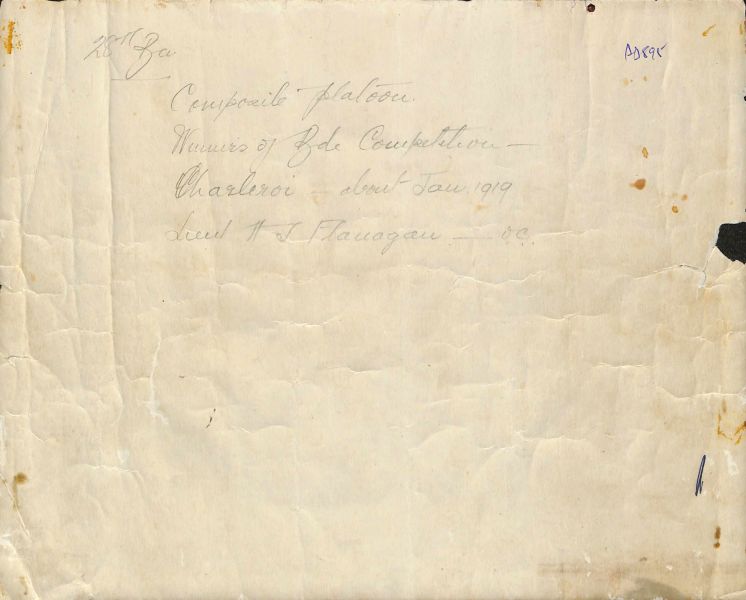 28th Bn
AD895
Composite platoon.
Winners of Bde Competition —
Charleroi — about Jan. 1919
Lieut H J Flanagan — OC.